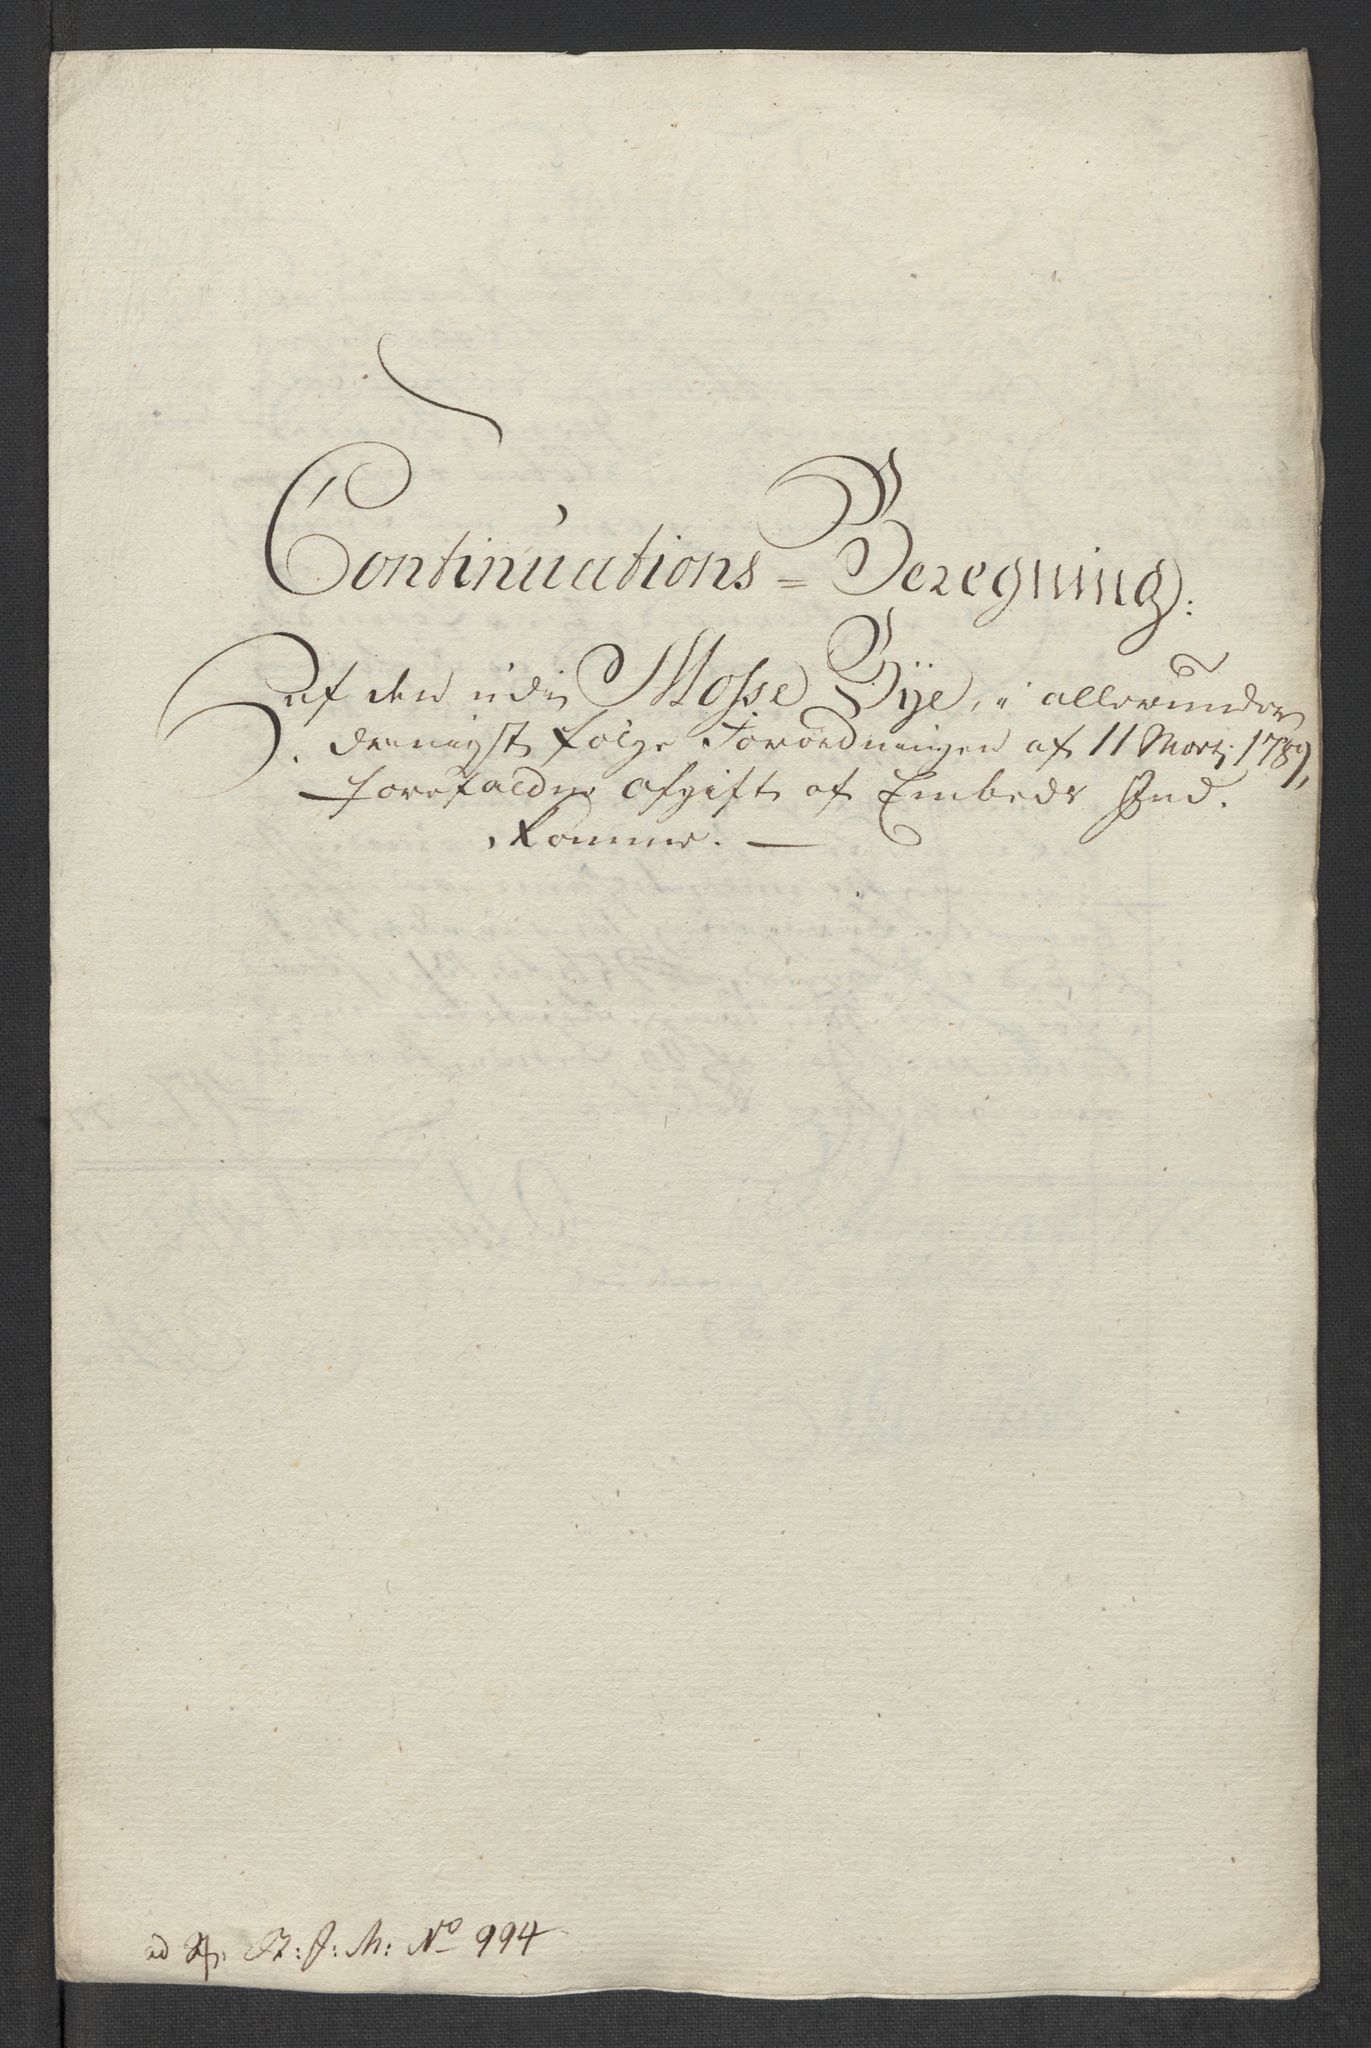 Continuations = Beregning:
af den udi Mosse Bÿe, i allerunder
danigst følge Forordningen af 11 Martj 1789,
forefaldne Afgift af Embeds Ind.
komme. —
ad R: J: M: No 994